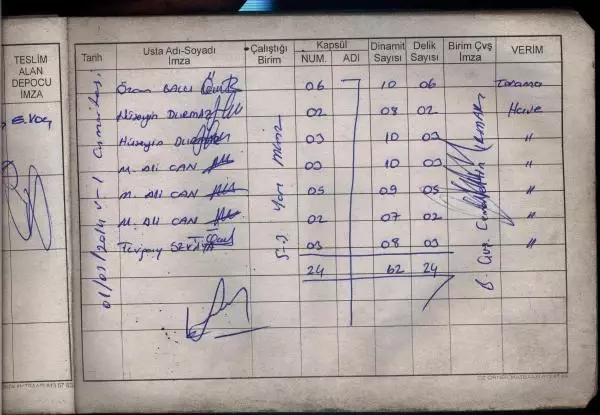 TESLİM
ALAN
DEPOCU
İMZA
E. Koç
Tarih Usta Adı-Soyadı İmza Çalıştığı Birim Kapsül NUM. ADI Dinamit Sayısı Delik Sayısı Birim Çvş İmza VERİM
01/03/2014 V-1 Cumartesi
Özcan BALLI 06 10 06 Tarama
Hüseyin DURMAZ 02 08 02 Have
Hüseyin DURMAZ 03 10 03 "
M. Ali CAN 03 10 03 "
M. Ali CAN 05 09 05 "
M. Ali CAN 02 07 02 "
03 08 03 "
24 62 24